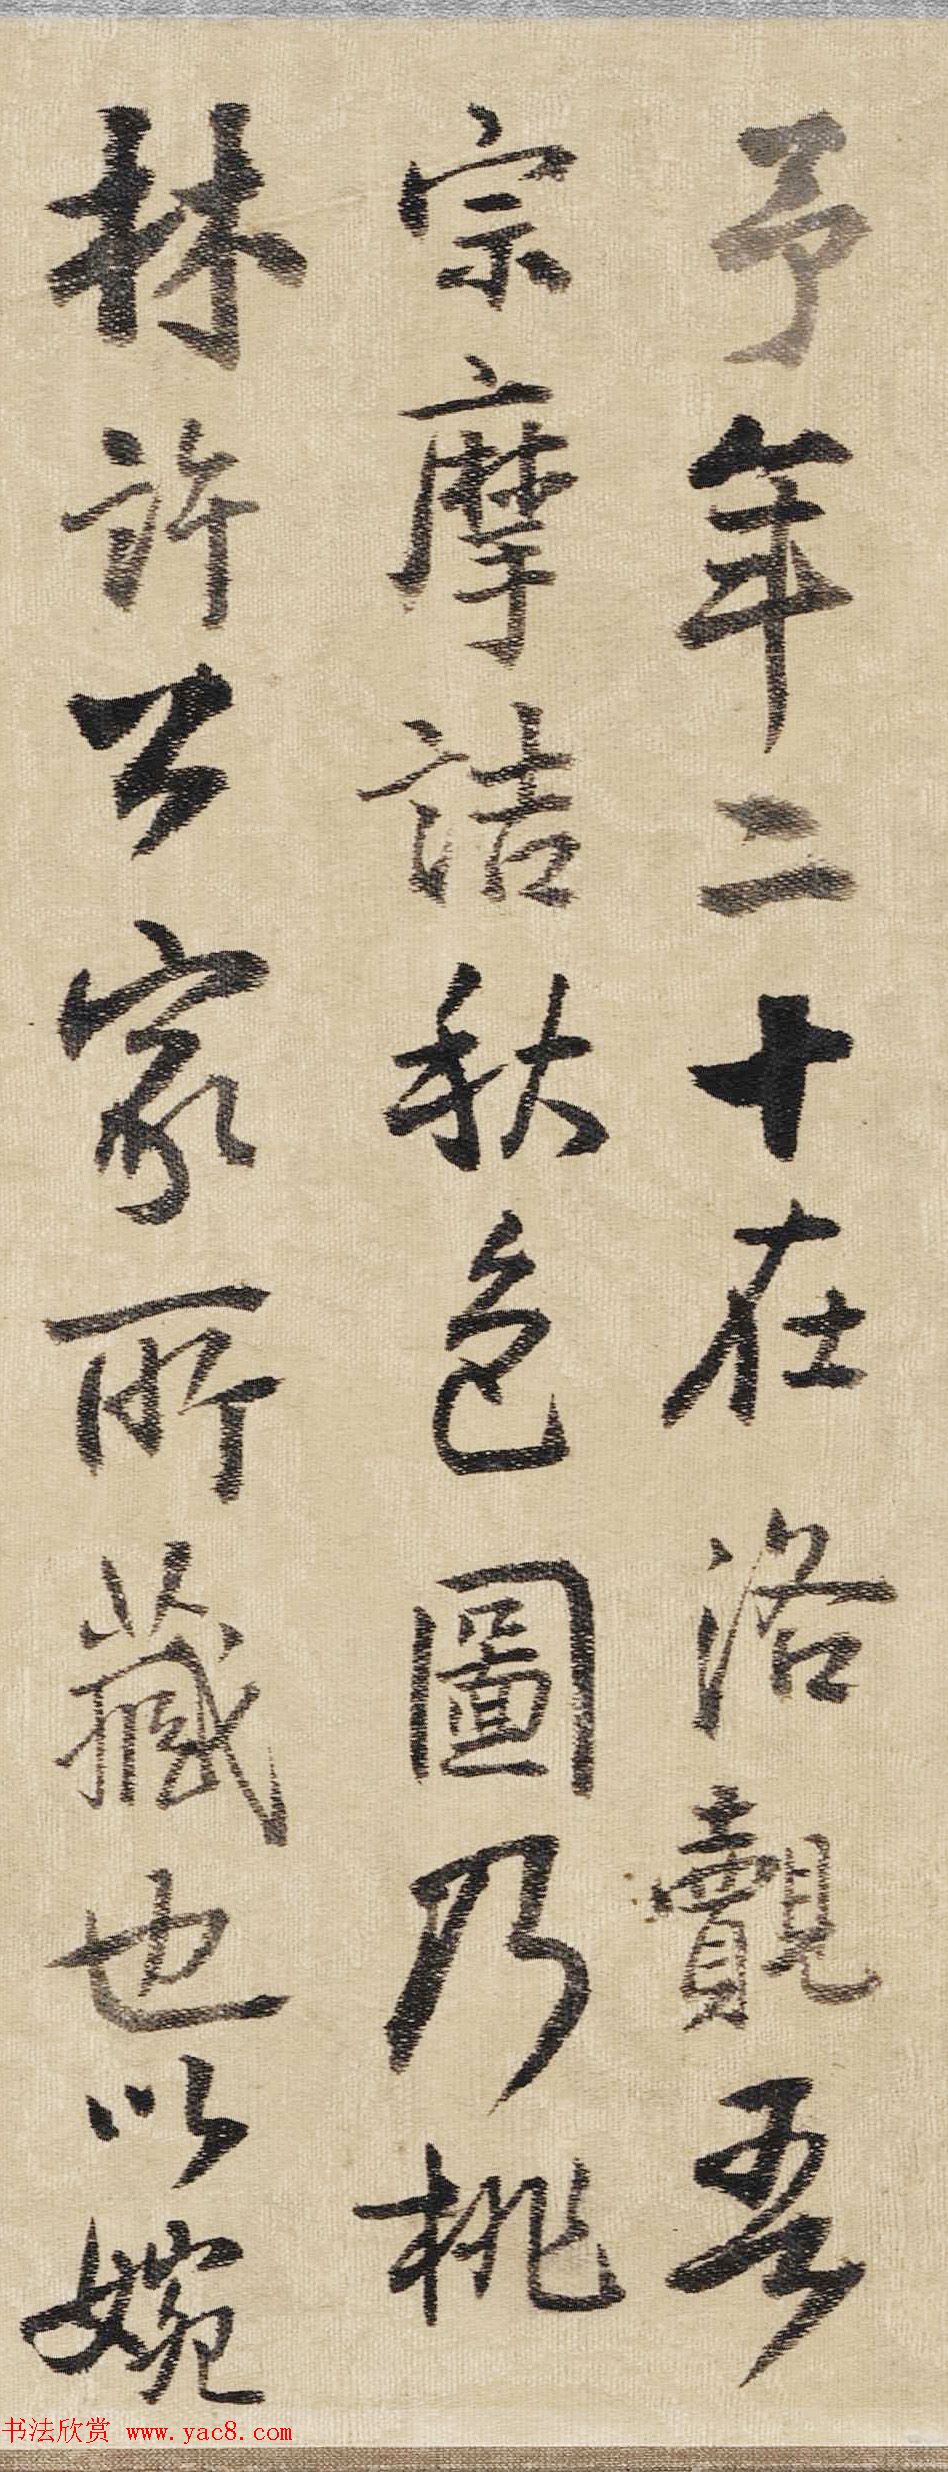 予年二十在洛觀吾
宗摩詰秋色圖乃桃
林許公家所藏也以婉
书法欣赏 www.yac8.com